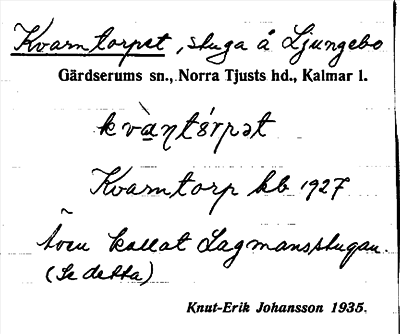 Kvarntorpet, stuga å Ljungebo
Gärdserums sn., Norra Tjusts hd., Kalmar l.
kvàṇtó́rpət
Kvarntorp kb 1927
Även kallat Lagmansstugan.
(Se detta)
Knut-Erik Johansson 1935.